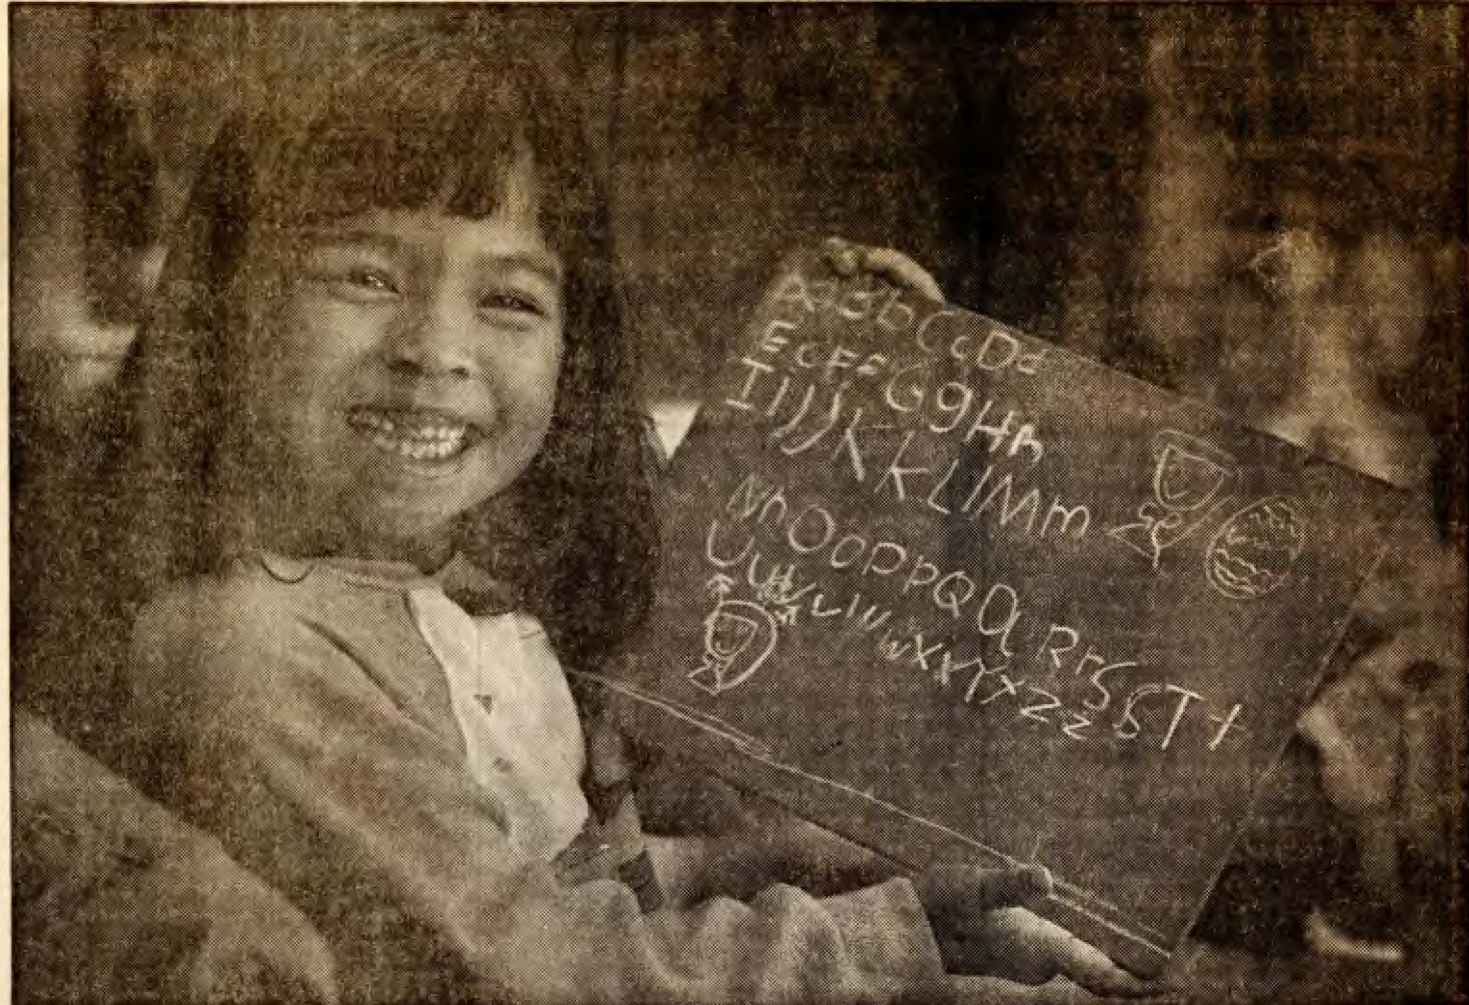 AaBbCcDd
EeFfGgHh
IiJjKkLlMm
NnOoPpQqRrSsTt
UuVvWwXxYyZz